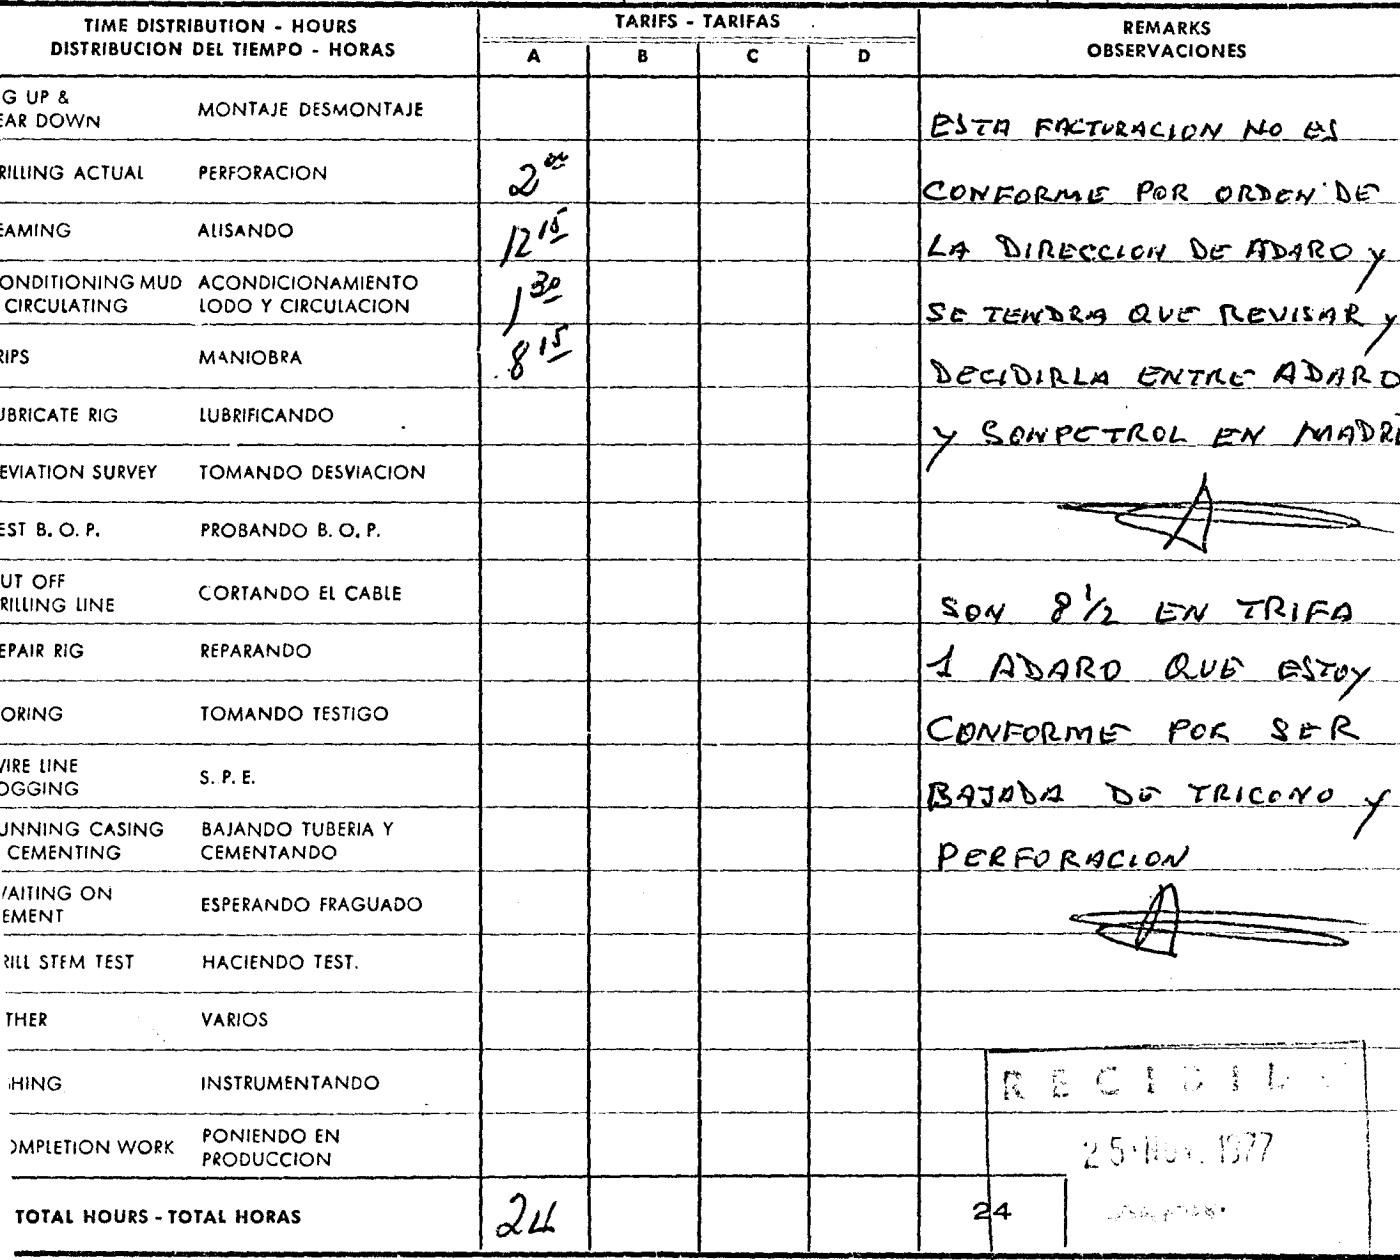 TIME DISTRIBUTION - HOURS
DISTRIBUCION DEL TIEMPO - HORAS
TARIFS - TARIFAS
A B C D
REMARKS
OBSERVACIONES
G UP &
EAR DOWN
MONTAJE DESMONTAJE
ESTA FACTURACION NO ES
RILLING ACTUAL PERFORACION 2 00
CONFORME POR ORDEN DE
EAMING ALISANDO 12 15
LA DIRECCION DE ADARO Y
ONDITIONING MUD ACONDICIONAMIENTO
CIRCULATING LODO Y CIRCULACION 1 30
SE TENDRA QUE REVISAR Y
RIPS MANIOBRA 8 15
DECIDIRLA ENTRE ADARO
UBRICATE RIG LUBRIFICANDO
Y SONPETROL EN MADRI
EVIATION SURVEY TOMANDO DESVIACION
EST B. O. P. PROBANDO B. O. P.
UT OFF
RILLING LINE
CORTANDO EL CABLE
SON 8 1/2 EN TRIFA
EPAIR RIG REPARANDO
1 ADARO QUE ESTOY
ORING TOMANDO TESTIGO
CONFORME POR SER
WIRE LINE
OGGING
S. P. E.
BAJADA DE TRICONO Y
UNNING CASING BAJANDO TUBERIA Y
CEMENTING CEMENTANDO
PERFORACION
AITING ON
EMENT
ESPERANDO FRAGUADO
RILL STEM TEST HACIENDO TEST.
THER VARIOS
HING INSTRUMENTANDO
OMPLETION WORK PONIENDO EN
PRODUCCION
25 NOV. 1977
TOTAL HOURS - TOTAL HORAS 24 24